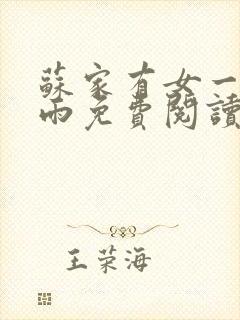 蘇家有女一
雨免費閱讀
王荣海